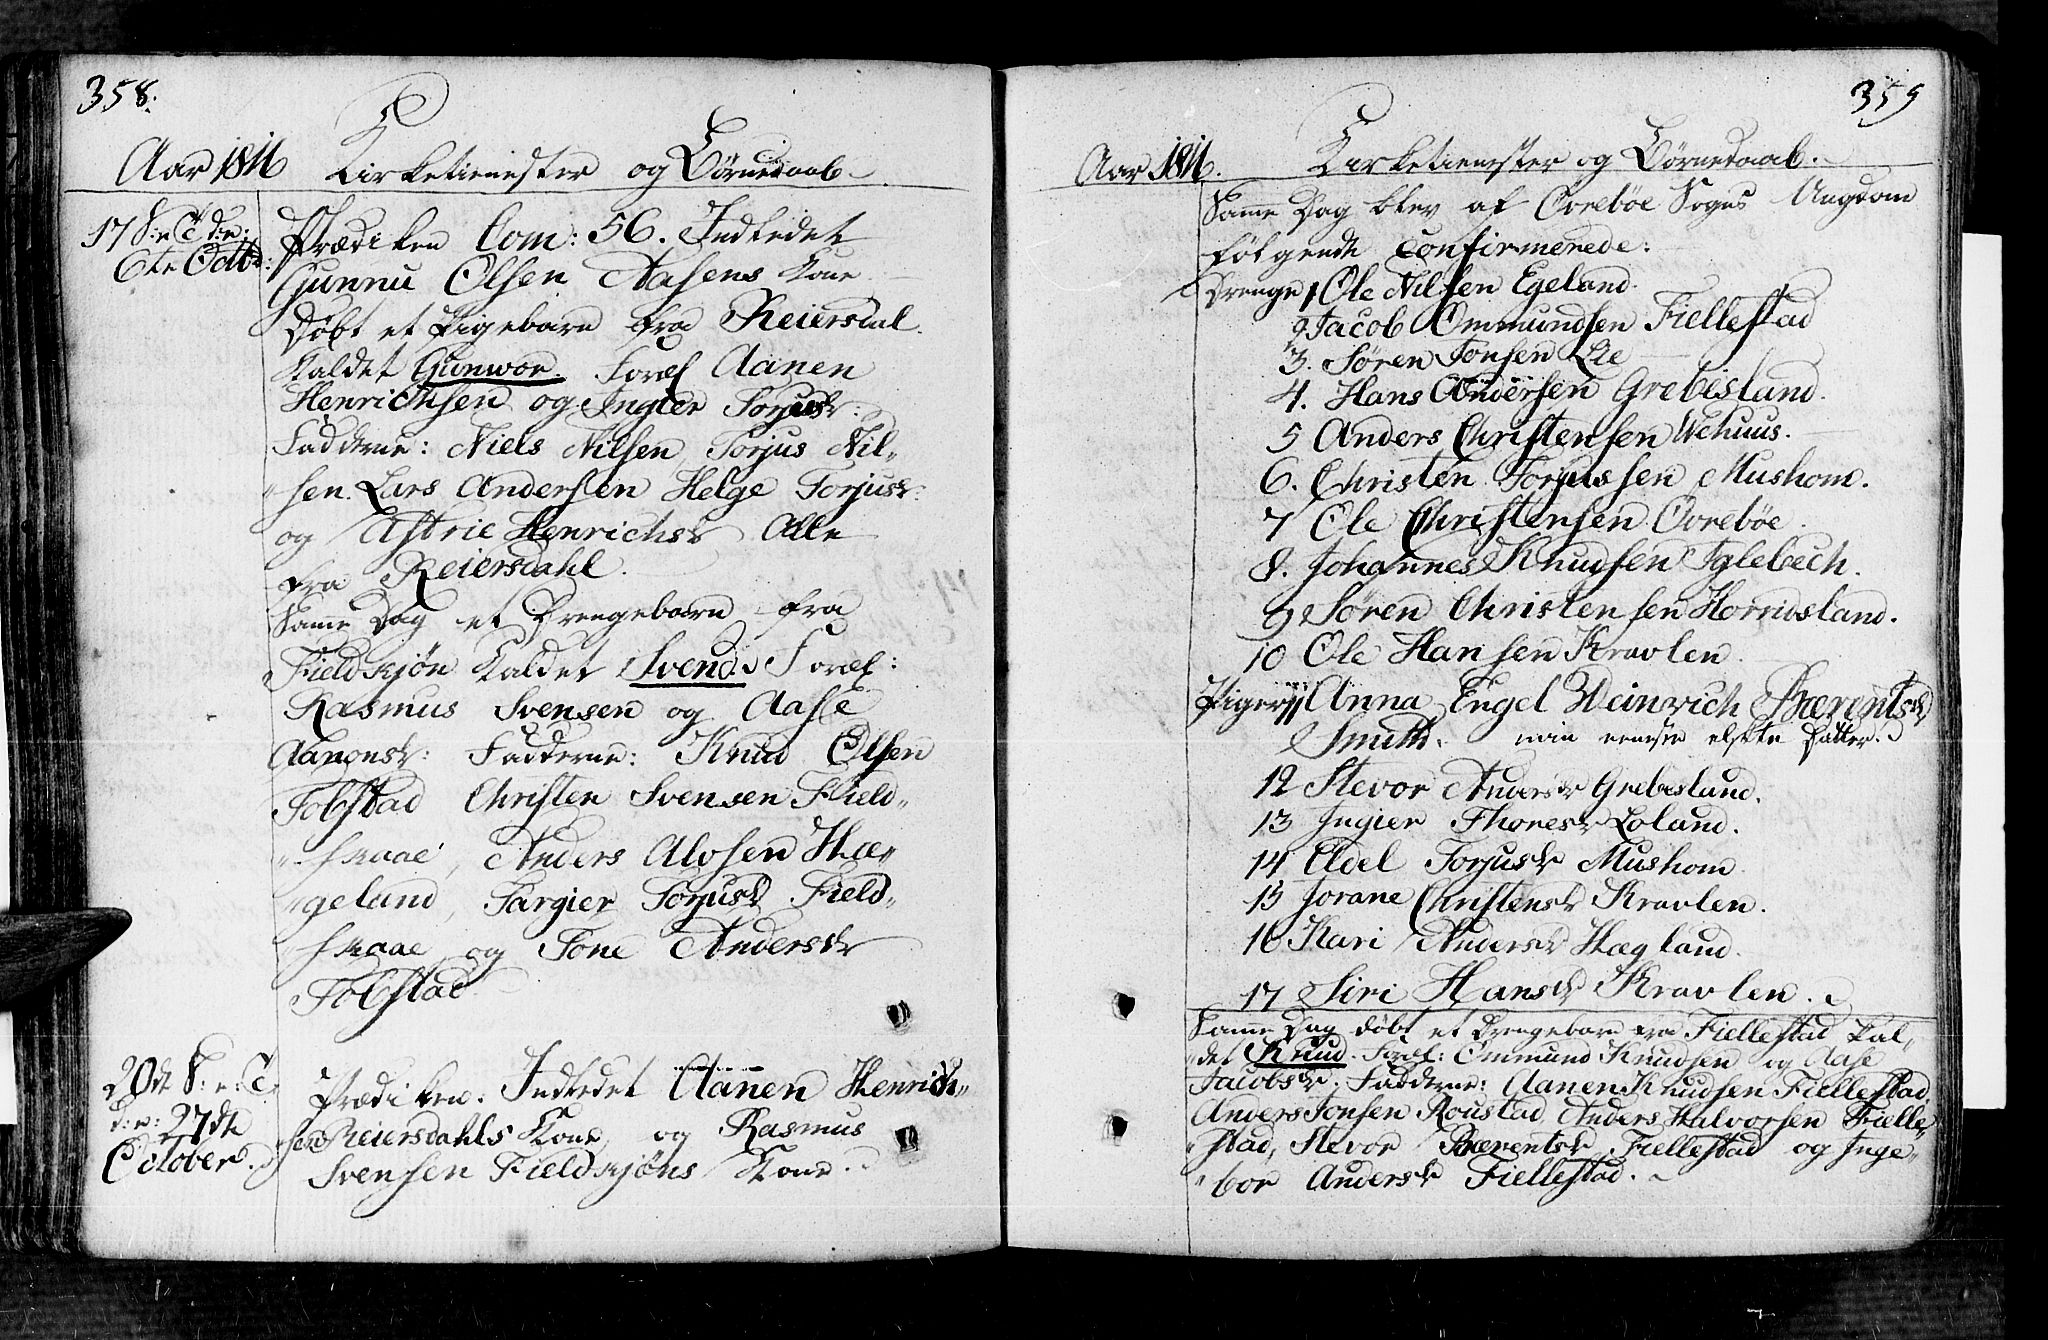 358.
Aar 1811 Kirketienester og Børnedaab.
17 S: e: T: d: e:
6te Octbr:
Prædiken Com: 56. Indledet
Gunnu Olsen Aasens Kone
Døbt et Pigebarn fra Reiersdal
Kaldet Gunwor. Foræl Aanen
Henrichsen og Ingier Torjusdr:
Fadderne: Niels Nilsen Torjus Nil-
sen. Lars Andersen Helge Torjusdr:
og Astrie Henrichsdr Alle
fra Reiersdahl.
Samme Dag et Drengebarn fra
Fieldskjøn Kaldet Svend. Foræl:
Rasmus Svensen og Aasse
Aanonsdr: Fadderne: Knud Olsen
Fobstad Christen Svensen Field-
skaae, Anders Alvsen Hæ-
geland, Targier Torjusdr Field-
skaae og Tone Andersdr
Fobstad
20de S: e: T:
d: e: 27de
October.
Prædiken. Indledet Aanen Henrich-
sen Reiersdahls Kone, og Rasmus
Svensen Fieldskjøns Kone.
359
Aar 1811. Kirketienester og Børnedaab.
Samme Dag blev af Øvrebøe Sogns Ungdom
følgende confirmerede:
Drenge 1 Ole Nilsen Egeland.
2 Jacob Ommundsen Fiellestad
3. Søren Jonsen Lie
4. Hans Andersen Grebisland.
5 Anders Christensen Wehuus.
6. Christen Torjussen Mushom.
7 Ole Christensen Øvrebøe.
8. Johannes Knudsen Iglebech.
9 Søren Christensen Horrisland.
10 Ole Hansen Kravlen
Piger 11 Anna Engel Weinrich Bærentsdr
Smith. min eeneste elskte Datter.
12 Stevor Andersdr Grebesland.
13 Ingier Thoresdr Loland.
14 Eldel Torjusdr Mushom.
15 Jorane Christensdr Kravlen.
16 Kari Andersdr Hægland.
17 Siri Hansdr Kravlen.
Samme Dag døbt et Drengebarn fra Fiellestad kal-
det Knud. Foræl: Ommund Knudsen og Aase
Jacobsdr. Fadderne: Aanen Knudsen Fiellestad,
Anders Jonsen Roustad, Anders Halvorsen Fielle-
stad, Stevor Bærentsdr Fiellestad og Inge-
bor Andersdr Fiellestad.